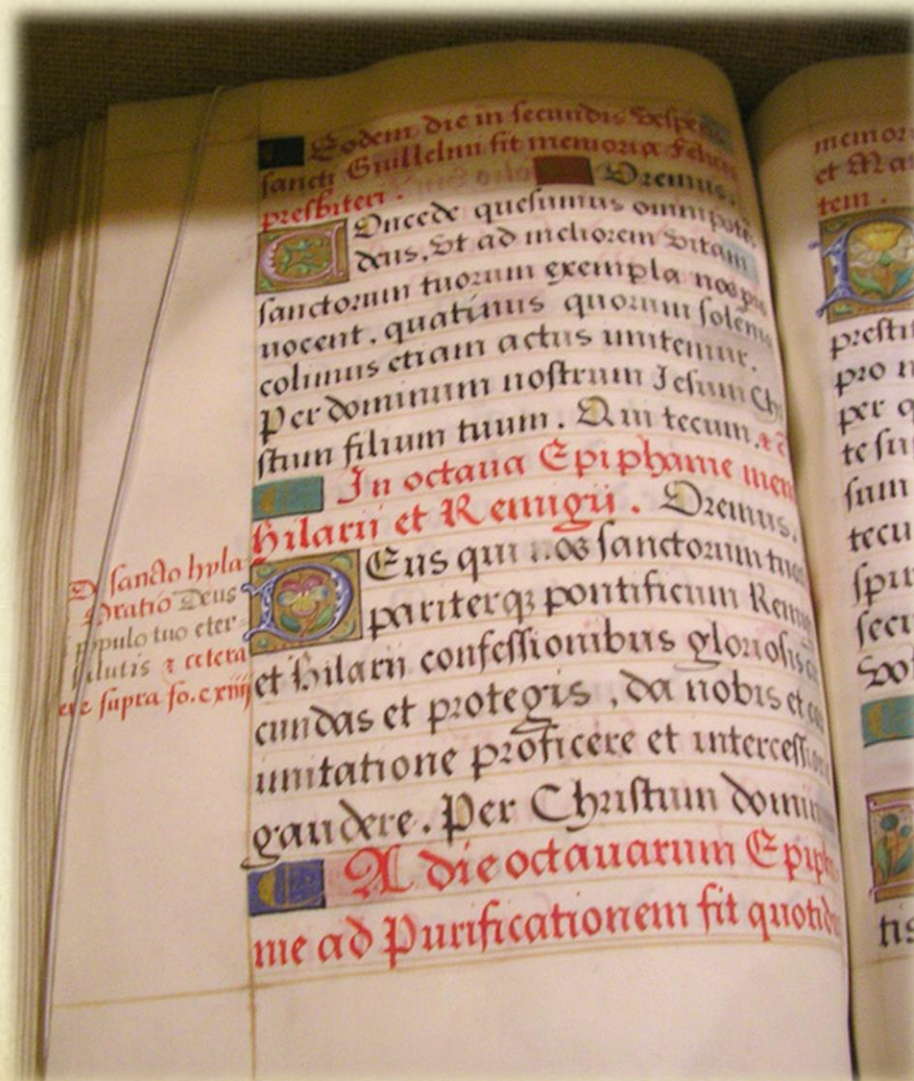 Eodem die in secundis Vesperis
sancti Guillelmi fit memoria Felicis
presbiteri. Oremus.
Oncede quesumus omnipote
deus, Vt ad meliorem Vitam
sanctorum tuorum exempla nos pro
uocent. quatinus quorum solem
colimus etiam actus imitemur.
Per dominum nostrum Jesum Chri
stum filium tuum. Qui tecum. &c
In octaua Epiphanie mem
hilarii et Remigii. Oremus.
DEus qui nos sanctorum tuo
pariterq; pontificum Remi
et hilarii confessionibus gloriosis
cundas et protegis, da nobis et eo
imitatione proficere et intercessio
gaudere. Per Christum domin
A die octauarum Epipha
nie ad Purificationem fit quotid
De sancto hyla
Oratio Deus
populo tuo eter-
salutis & cetera
supra fo. cxiiij
memor
et Ma
tem.
prestu
pro n
per q
te su
sum
tecu
spir
secu
tis